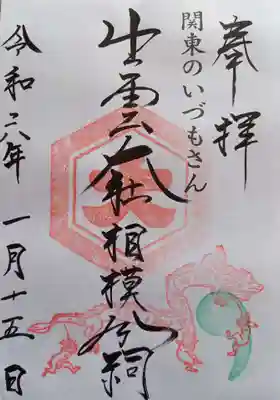 奉拝
関東のいづもさん
出雲大社相模分祠
令和六年 一月十五日
大